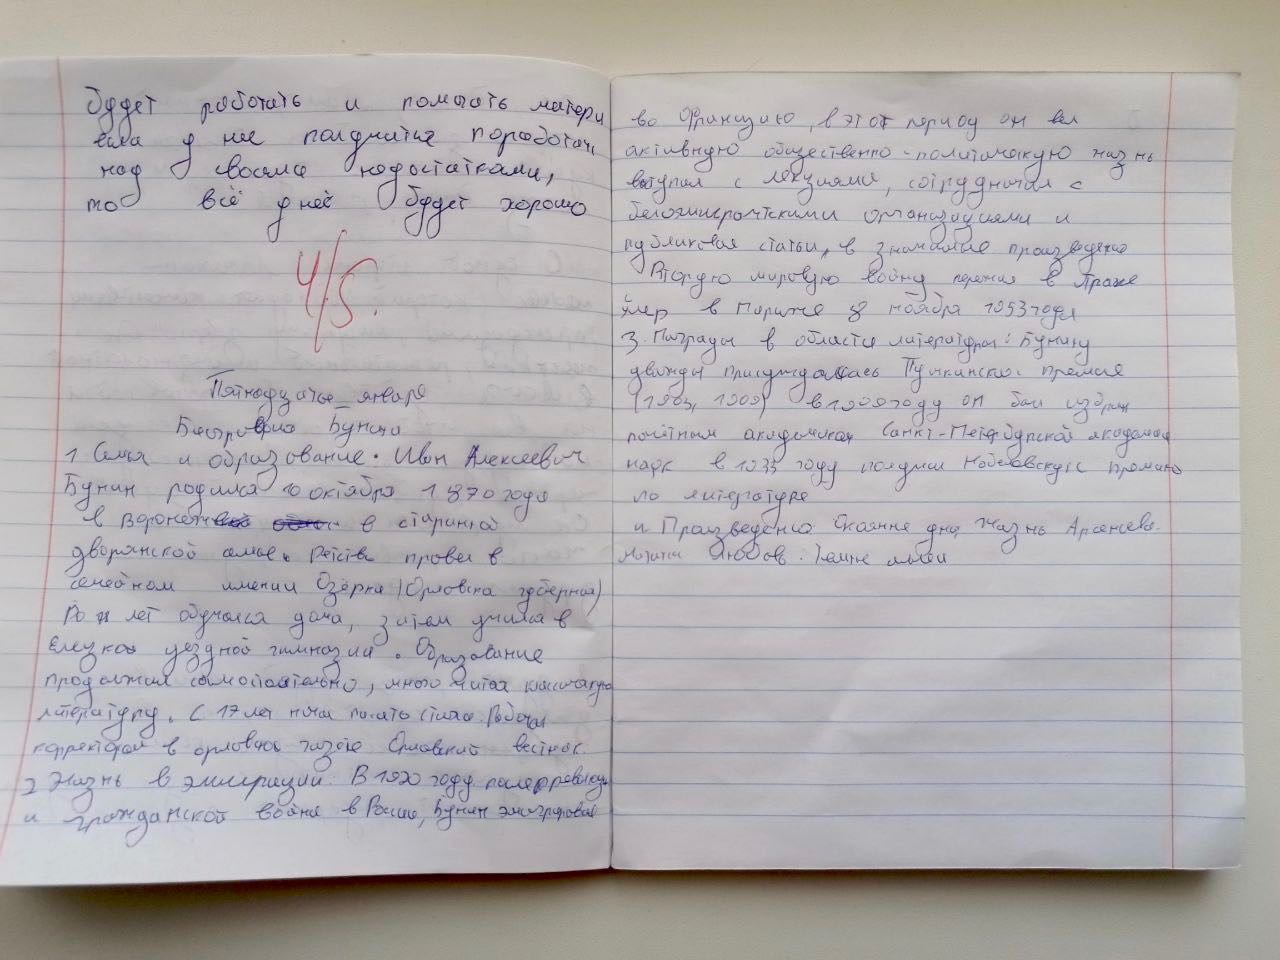 будет работать и помогать матери
если у неё получится поработать
над своими недостатками,
то всё у неё будет хорошо
4/5.
Пятнадцатое января
Биография Бунина
1 Семья и образование. Иван Алексеевич
Бунин родился 10 октября 1870 года
в Воронеже в старинной
дворянской семье. Детство провел в
семейном имении Озёрки (Орловска губерния)
До лет обучался дома, затем учился в
Елецкой уездной гимназии. Образование
продолжил самостоятельно, много читая классическую
литературу. С 17 лет начал писать стихи. Работал
корректором в орловской газете Орловский вестник.
2 Жизнь в эмиграции. В 1920 году после революции
и гражданской войны в России, Бунин эмигрировал
во Францию, в этот период он вел
активную общественно-политическую жизнь
выступал с лекциями, сотрудничал с
белоэмигрантскими организациями и
публиковал статьи, в произведение
Вторую мировую войну пережил в
Умер в Париже 8 ноября 1953 года
3. Награды в области литературы: Бунину
дважды присуждалась Пушкинская премия
(1903, 1909) в 1909 году он был избран
почётным академиком Санкт-Петербургской академии
наук в 1933 году получил Нобелевскую премию
по литературе
и Произведения Окаянные дни, Жизнь Арсеньева.
Митина Любовь. Темные аллеи